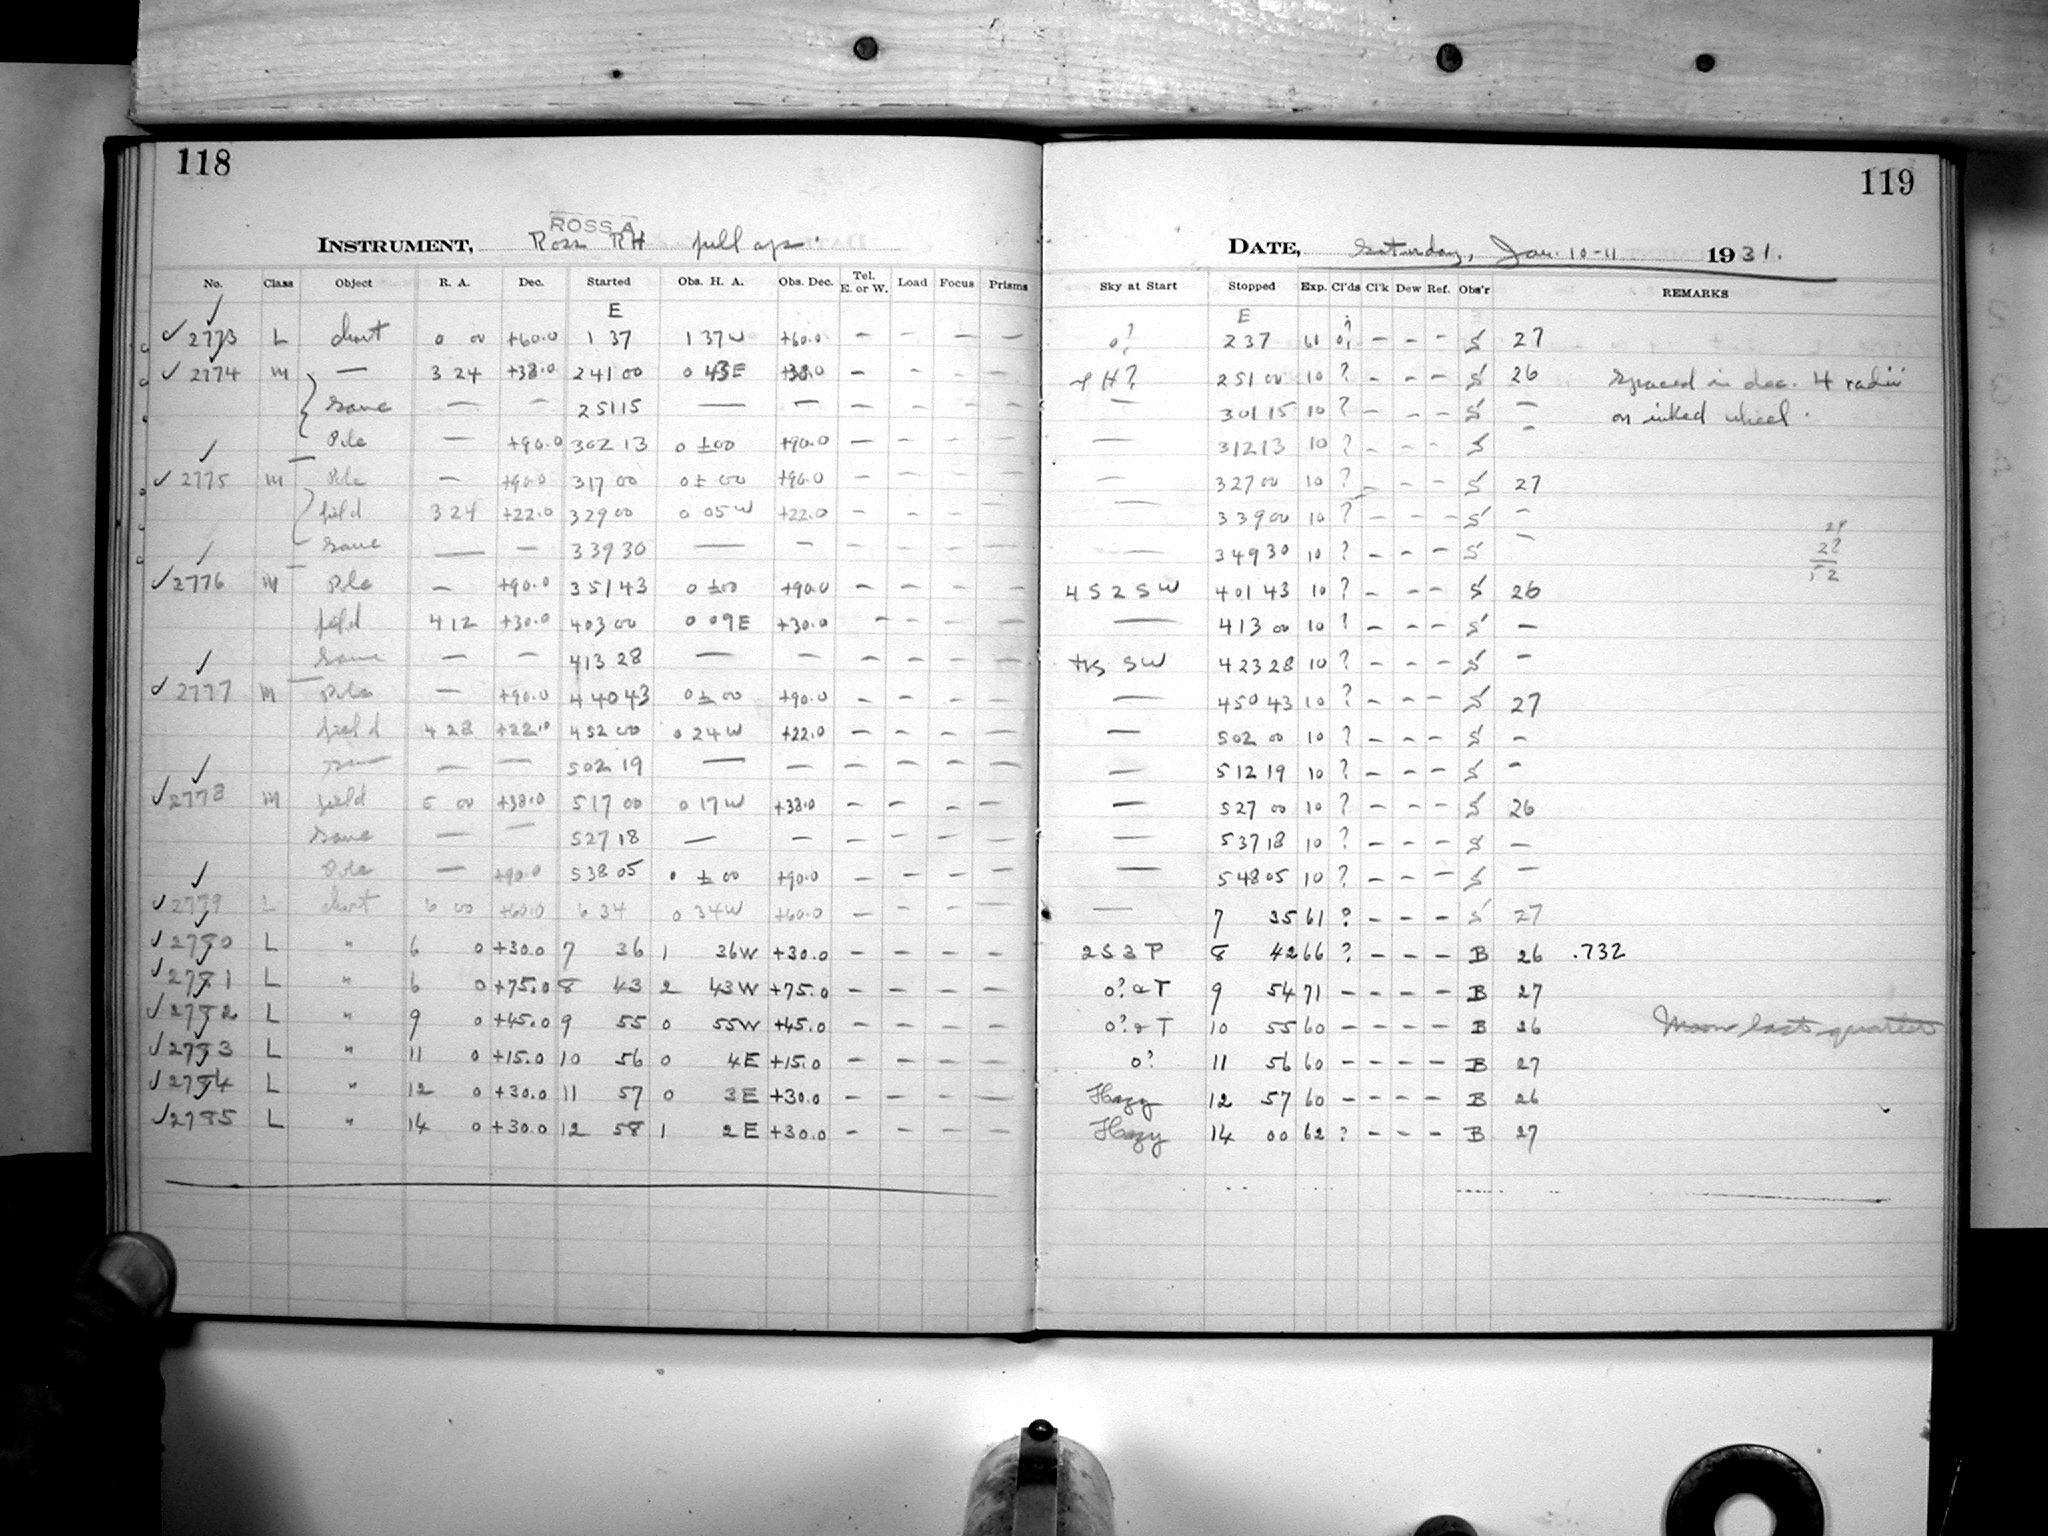 118
ROSS A
INSTRUMENT, Ross RH full ap.
No. Class Object R. A. Dec. Started Obs. H. A. Obs. Dec. Tel. E. or W. Load Focus Prisms
E
2773 L chart 0 00 +60.0 1 37 1 37W +60.0 — — — —
2774 M — 3 24 +38.0 2 41 00 0 43E +38.0 — — — —
Same — — 2 51 15 — — — — — —
Pole — +90.0 3 02 13 0 ±00 +90.0 — — — —
2775 M Pole — +90.0 3 17 00 0 ± 00 +90.0 — — — —
field 3 24 +22.0 3 29 00 0 05W +22.0 — — — —
Same — — 3 39 30 — — — — — —
2776 M Pole — +90.0 3 51 43 0 ±00 +90.0 — — — —
field 4 12 +30.0 4 03 00 0 09E +30.0 — — — —
Same — — 4 13 28 — — — — — —
2777 M Pole — +90.0 4 40 43 0 ± 00 +90.0 — — — —
field 4 28 +22.0 4 52 00 0 24W +22.0 — — — —
Same — — 5 02 19 — — — — — —
2778 M field 5 00 +38.0 5 17 00 0 17W +38.0 — — — —
Same — — 5 27 18 — — — — — —
Pole — +90.0 5 38 05 0 ± 00 +90.0 — — — —
2779 L chart 6 00 +60.0 6 34 0 34W +60.0 — — — —
2780 L " 6 0 +30.0 7 36 1 36W +30.0 — — — —
2781 L " 6 0 +75.0 8 43 2 43W +75.0 — — — —
2782 L " 9 0 +45.0 9 55 0 55W +45.0 — — — —
2783 L " 11 0 +15.0 10 56 0 4E +15.0 — — — —
2784 L " 12 0 +30.0 11 57 0 3E +30.0 — — — —
2785 L " 14 0 +30.0 12 58 1 2E +30.0 — — — —
119
DATE, Saturday, Jan. 10-11 1931.
Sky at Start Stopped Exp. Cl'ds Cl'k Dew Ref. Obs'r REMARKS
E
0? 2 37 61 0? — — — S 27
H? 2 51 00 10 ? — — — S 26 Spaced in dec. 4 radii
— 3 01 15 10 ? — — — S — on inked wheel.
— 3 12 13 10 ? — — — S —
— 3 27 00 10 ? — — — S 27
— 3 39 00 10 ? — — — S —
— 3 49 30 10 ? — — — S —
4 S 2 S W 4 01 43 10 ? — — — S 26
— 4 13 00 10 ? — — — S —
SW 4 23 28 10 ? — — — S —
— 4 50 43 10 ? — — — S 27
— 5 02 00 10 ? — — — S —
— 5 12 19 10 ? — — — S —
— 5 27 00 10 ? — — — S 26
— 5 37 18 10 ? — — — S —
— 5 48 05 10 ? — — — S —
— 7 35 61 ? — — — S 27
2 S 3 P 8 42 66 ? — — — B 26 .732
0? & T 9 54 71 — — — — B 27
0? & T 10 55 60 — — — — B 26 Moon last quarter
0? 11 56 60 — — — — B 27
Hazy 12 57 60 — — — — B 26
Hazy 14 00 62 ? — — — B 27